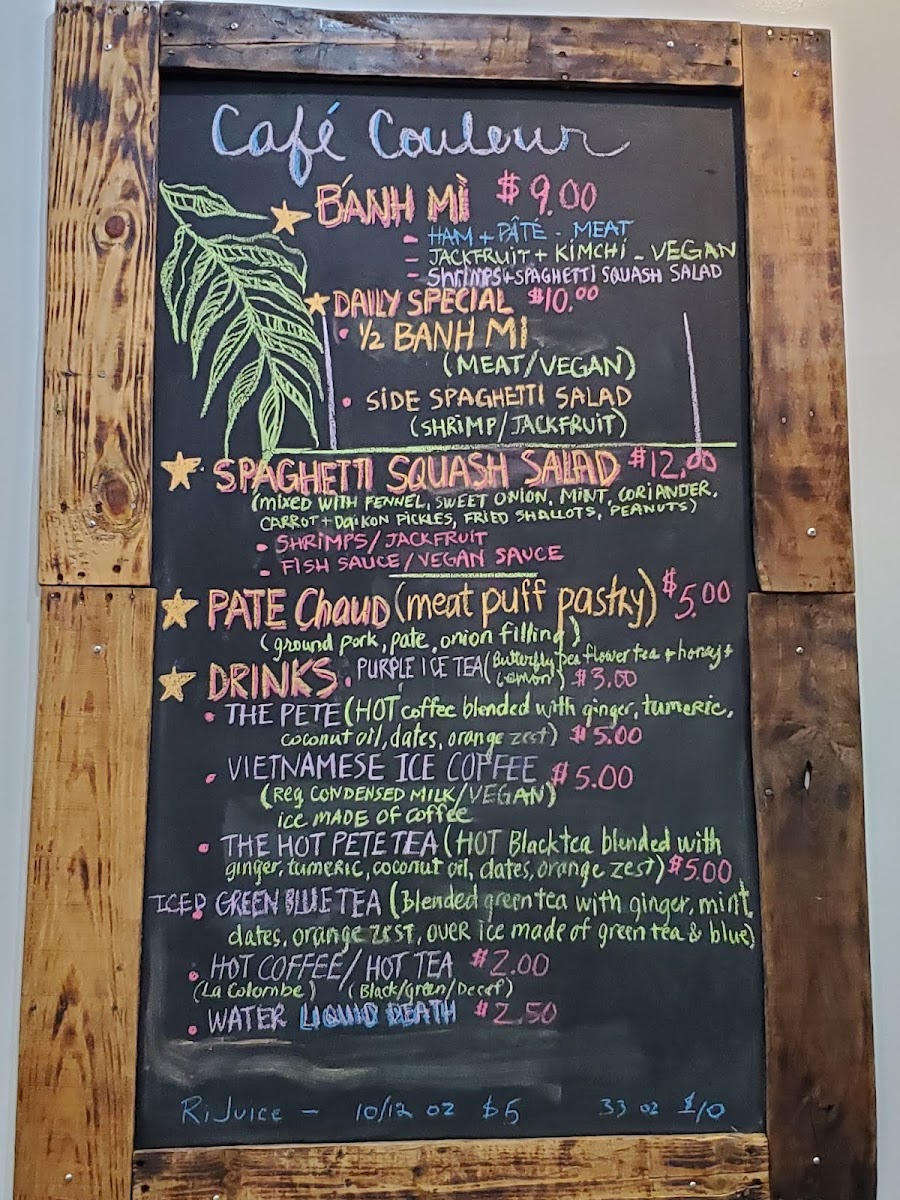 Café Couleur
BÁNH MÌ $9.00
- HAM + PÂTÉ - MEAT
- JACKFRUIT + KIMCHI - VEGAN
- Shrimps + SPAGHETTI SQUASH SALAD
DAILY SPECIAL $10.00
• 1/2 BANH MI
(MEAT/VEGAN)
• SIDE SPAGHETTI SALAD
(SHRIMP/JACKFRUIT)
SPAGHETTI SQUASH SALAD $12.00
(MIXED WITH FENNEL, SWEET ONION, MINT, CORIANDER,
CARROT + DaiKON PICKLES, FRIED SHALLOTS, PEANUTS)
- SHRIMPS/JACKFRUIT
- FISH SAUCE/VEGAN SAUCE
PATE Chaud (meat puff pastry) $5.00
(ground pork, pate, onion filling)
DRINKS • PURPLE ICE TEA (Butterfly pea flower tea + honey +
lemon) $3.00
• THE PETE (HOT coffee blended with ginger, tumeric,
coconut oil, dates, orange zest) $5.00
• VIETNAMESE ICE COFFEE $5.00
(Reg CONDENSED MILK/VEGAN)
ice MADE OF coffee
• THE HOT PETE TEA (HOT Black tea blended with
ginger, tumeric, coconut oil, dates, orange zest) $5.00
ICED • GREEN BLUE TEA (Blended green tea with ginger, mint,
dates, orange zest, over ice made of green tea & blue)
• HOT COFFEE/HOT TEA $2.00
(La Colombe) (Black/green/Decaf)
• WATER LIQUID DEATH $2.50
RiJuice - 10/12 oz $5 33 oz $10